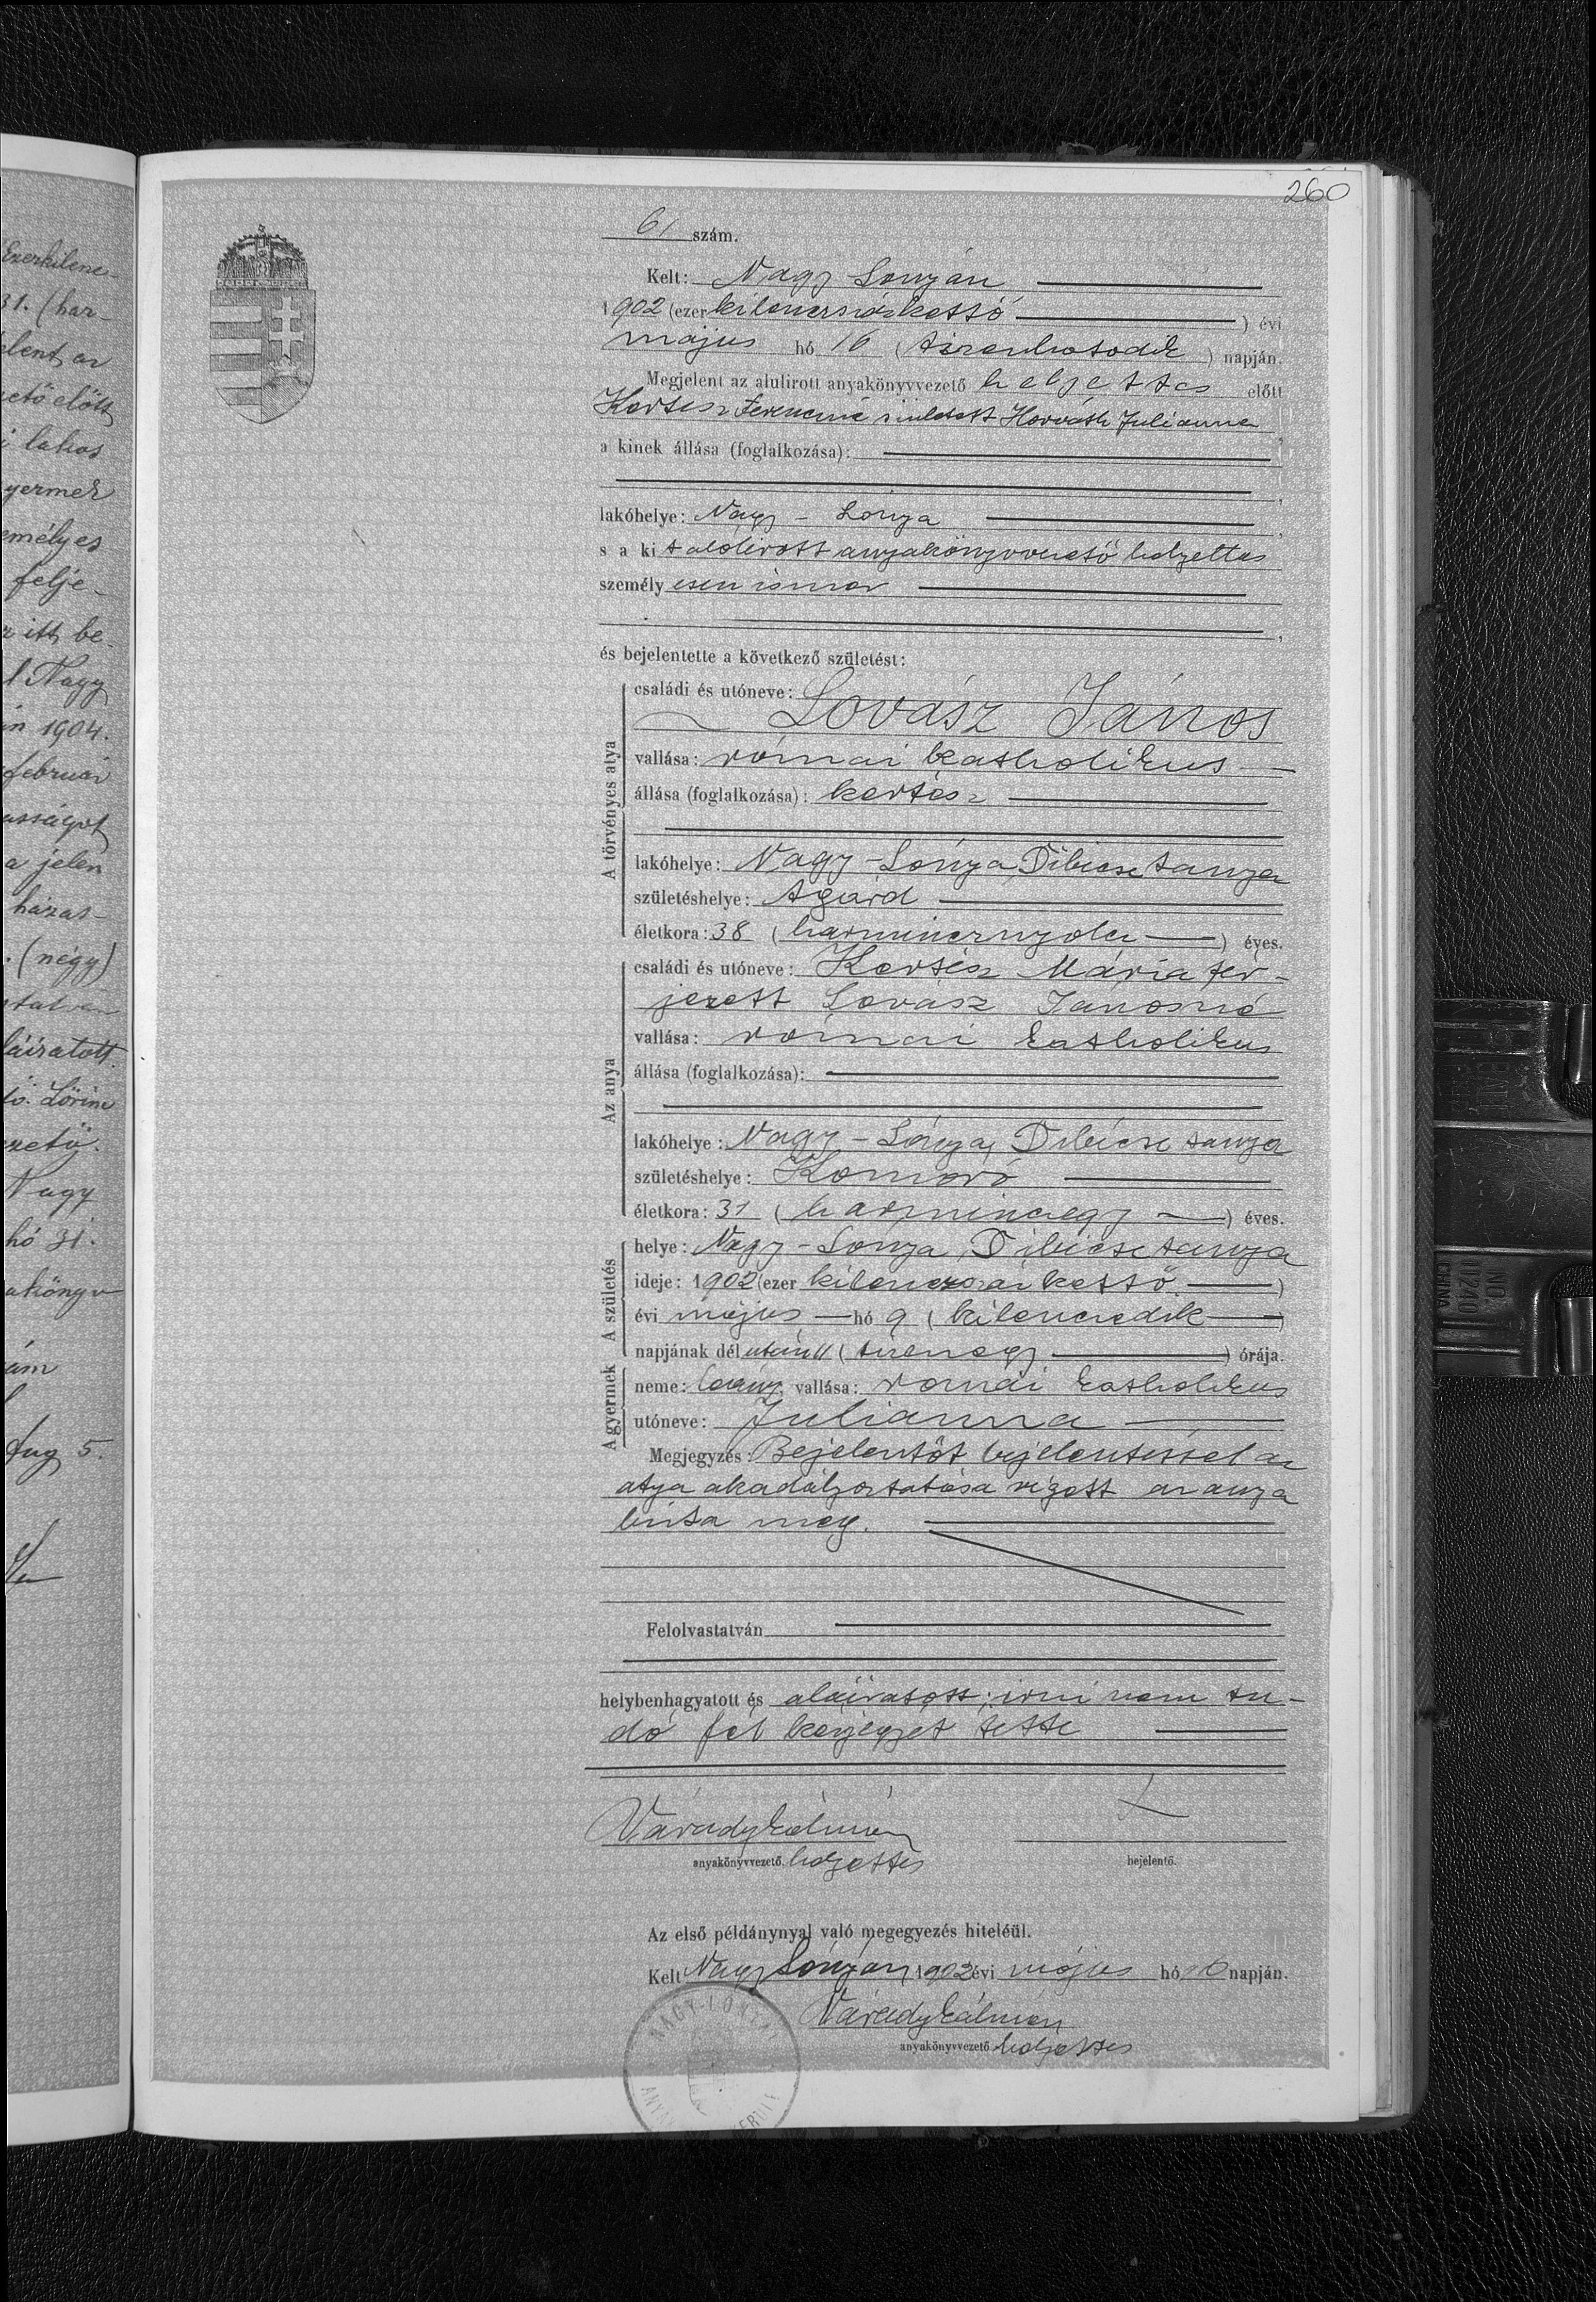 260
61 szám.
Kelt: Nagy Lónyán
1902 (ezer kilencszázkettő) évi
május hó 16 (tizenhatodik) napján.
Megjelent az alulirott anyakönyvvezető helyettes előtt
Kertész Ferencné született Horváth Julianna,
a kinek állása (foglalkozása):
lakóhelye: Nagy-Lónya
s a kit aldirott anyakönyvvezető helyettes
személyesen ismer
és bejelentette a következő születést:
A törvényes atya
családi és utóneve:
Lovász János
vallása: római katholikus
állása (foglalkozása): kertész
lakóhelye: Nagy-Lónya, Tibicse tanya
születéshelye: Agárd
életkora: 38 (harmincznyolcz) éves.
Az anya
családi és utóneve: Kertész Mária fér-
jezett Lovász Jánosné
vallása: római katholikus
állása (foglalkozása):
lakóhelye: Nagy-Lónya, Tibicse tanya
születéshelye: Komoró
életkora: 31 (harminczegy) éves.
A születés
helye: Nagy-Lónya, Tibicse tanya
ideje: 1902 (ezer kilenczszázkettő)
évi május hó 9 (kilenczedik)
napjának délután 11 (tizenegy) órája.
A gyermek
neme: leány, vallása: római katholikus
utóneve: Julianna
Megjegyzés: Bejelentőt bejelentéssel az
atya akadályoztatása végett az anya
bízta meg.
Felolvastatván
helybenhagyatott és aláiratott; irni nem tu-
dó fél kézjegyét tette
Várady Kálmán
anyakönyvvezető. helyettes
bejelentő.
Az első példánynyal való megegyezés hiteléül.
Kelt Nagy Lónyán, 1902 évi május hó 16 napján.
Várady Kálmán
anyakönyvvezető helyettes
NAGY-LÓNYAI
Ezerkilenc-
31. (har-
i lakos
gyermek
emélyes
felje-
itt be-
Nagy
1904.
február
a jelen
házas-
(négy)
Lőrinc
Nagy
hó 31.
NO.
0240
CHINA